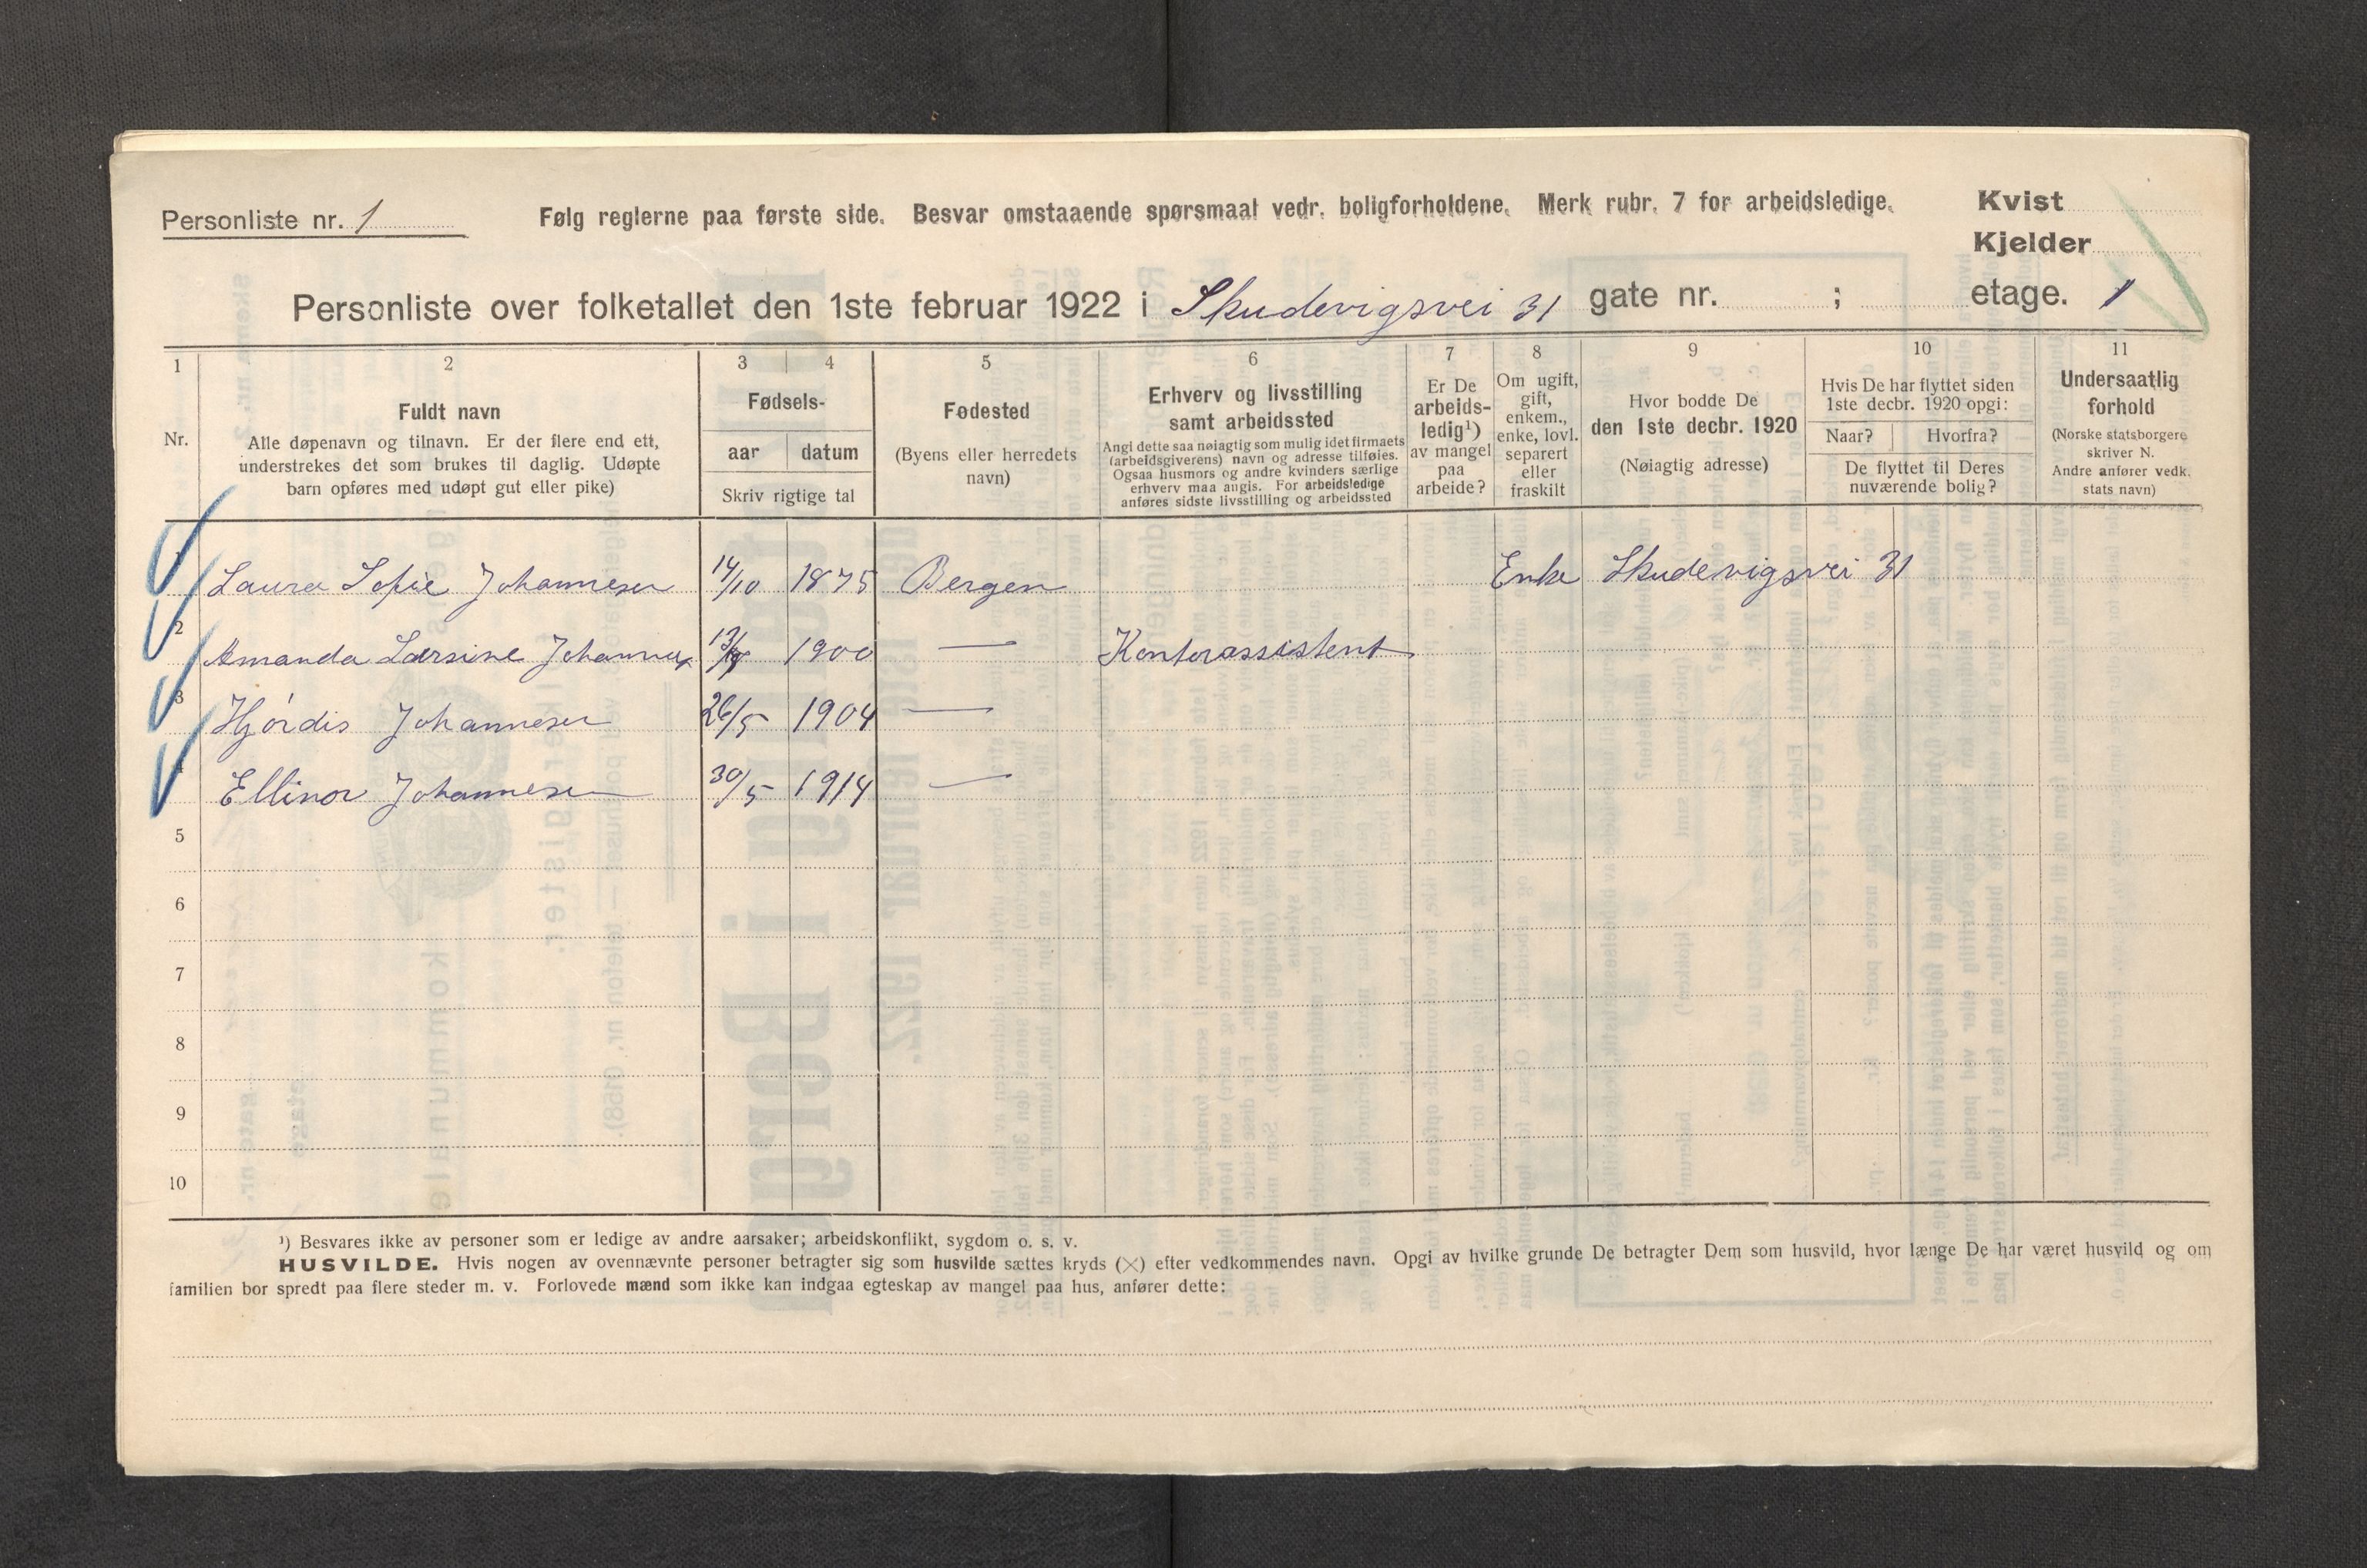 Personliste nr. 1
Følg reglerne paa første side. Besvar omstaaende spørsmaal vedr. boligforholdene. Merk rubr. 7 for arbeidsledige.
Kvist
Kjelder
Personliste over folketallet den 1ste februar 1922 i Skudevigsvei 31 gate nr. ; etage. 1
1 2 3 4 5 6 7 8 9 10 11
Nr.
Fuldt navn
Alle døpenavn og tilnavn. Er der flere end ett,
understrekes det som brukes til daglig. Udøpte
barn opføres med udøpt gut eller pike)
Fødsels-
aar datum
Skriv rigtige tal
Fødested
(Byens eller herredets
navn)
Erhverv og livsstilling
samt arbeidssted
Angi dette saa nøiagtig som mulig idet firmaets
(arbeidsgiverens) navn og adresse tilføies.
Ogsaa husmors og andre kvinders særlige
erhverv maa angis. For arbeidsledige
anføres sidste livsstilling og arbeidssted
Er De
arbeids-
ledig¹)
av mangel
paa
arbeide?
Om ugift,
gift,
enkem.,
enke, lovl.
separert
eller
fraskilt
Hvor bodde De
den 1ste decbr. 1920
(Nøiagtig adresse)
Hvis De har flyttet siden
1ste decbr. 1920 opgi:
Naar? Hvorfra?
De flyttet til Deres
nuværende bolig?
Undersaatlig
forhold
(Norske statsborgere
skriver N.
Andre anfører vedk.
stats navn)
1 Laura Sofie Johannesen 14/10 1875 Bergen Enke Skudevigsvei 31
2 Amanda Larsine Johannes 1900 — Kontorassistent
3 Hjördis Johannesen 26/5 1904 —
4 Ellinor Johannesen 30/5 1914 —
5
6
7
8
9
10
¹) Besvares ikke av personer som er ledige av andre aarsaker; arbeidskonflikt, sygdom o. s. v.
HUSVILDE. Hvis nogen av ovennævnte personer betragter sig som husvilde sættes kryds (×) efter vedkommendes navn. Opgi av hvilke grunde De betragter Dem som husvild, hvor længe De har været husvild og om
familien bor spredt paa flere steder m. v. Forlovede mænd som ikke kan indgaa egteskap av mangel paa hus, anfører dette: